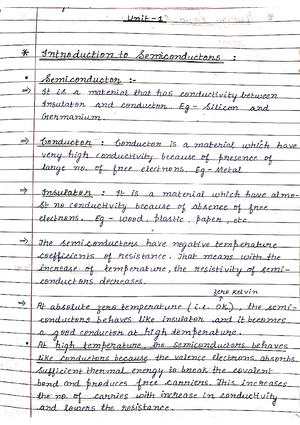 Unit-1
* Introduction to Semiconductors :
• Semiconductor :-
⇒ It is a material that has conductivity between
Insulator and conductor. Eg - Silicon and
Germanium.
⇒ Conductor : Conductor is a material which have
very high conductivity because of presence of
large no. of free electrons. Eg - Metal
⇒ Insulator : It is a material which have almo-
st no conductivity because of absence of free
electrons. Eg - wood, plastic, paper, etc.
⇒ The semiconductors have negative temperature
coefficients of resistance. That means with the
increase of temperature, the resistivity of semi-
conductors decreases.
zero kelvin
⇒ At absolute zero temperature (i.e. 0K), the semi-
conductors behaves like insulator and it becomes
a good conductor at high temperature.
• At high temperature, the semiconductors behaves
like conductors because the valence electrons absorbs
sufficient thermal energy to break the covalent
bond and produces free carriers. This increases
the no. of carries with increase in conductivity
and lowers the resistance.